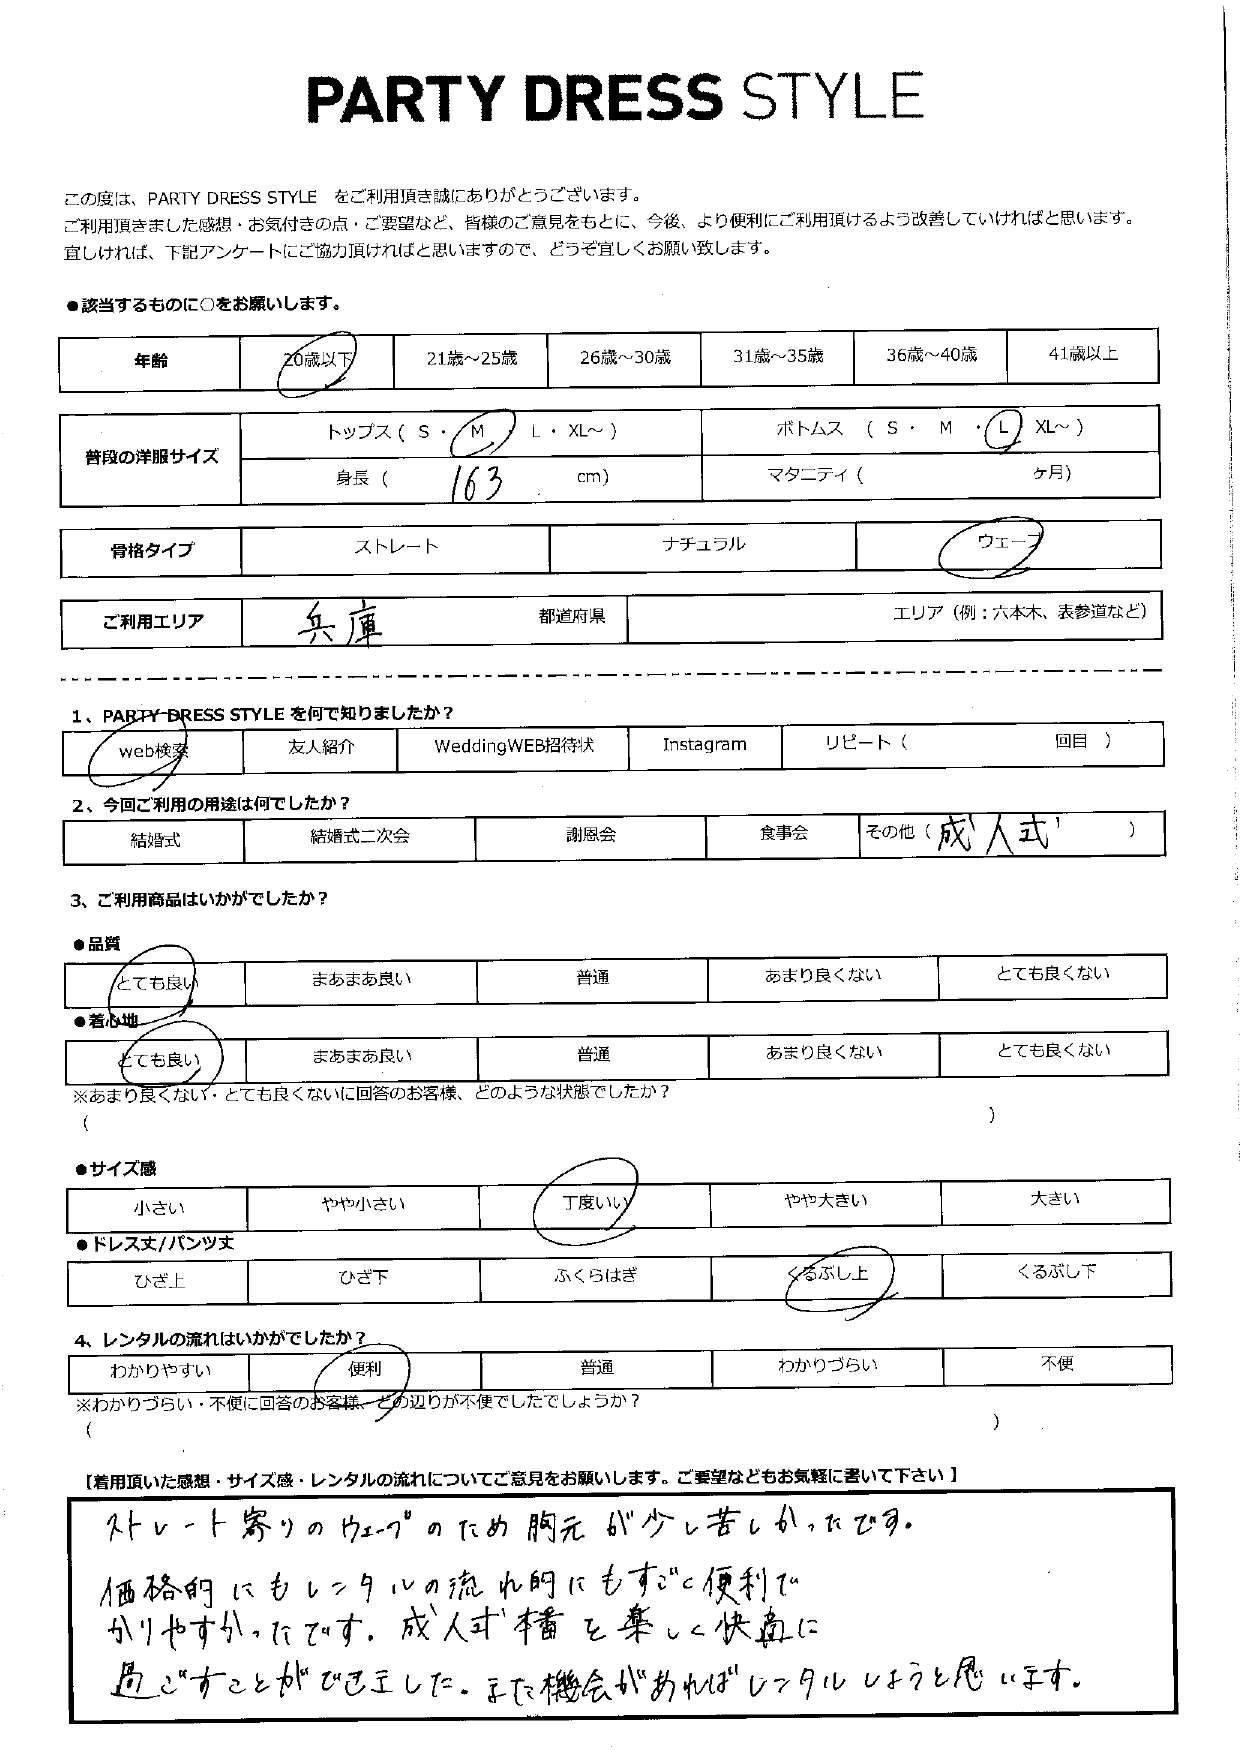 PARTY DRESS STYLE
この度は、PARTY DRESS STYLE をご利用頂き誠にありがとうございます。
ご利用頂きました感想・お気付きの点・ご要望など、皆様のご意見をもとに、今後、より便利にご利用頂けるよう改善していければと思います。
宜しければ、下記アンケートにご協力頂ければと思いますので、どうぞ宜しくお願い致します。
●該当するものに○をお願いします。
年齢 20歳以下 21歳～25歳 26歳～30歳 31歳～35歳 36歳～40歳 41歳以上
普段の洋服サイズ トップス ( S ・ M ・ L ・ XL～ ) ボトムス ( S ・ M ・ L XL～ )
身長 ( 163 cm) マタニティ ( ヶ月)
骨格タイプ ストレート ナチュラル ウェーブ
ご利用エリア 兵庫 都道府県 エリア（例：六本木、表参道など）
1、PARTY DRESS STYLE を何で知りましたか？
web検索 友人紹介 WeddingWEB招待状 Instagram リピート ( 回目 )
2、今回ご利用の用途は何でしたか？
結婚式 結婚式二次会 謝恩会 食事会 その他 ( 成人式 )
3、ご利用商品はいかがでしたか？
●品質
とても良い まあまあ良い 普通 あまり良くない とても良くない
●着心地
とても良い まあまあ良い 普通 あまり良くない とても良くない
※あまり良くない・とても良くないに回答のお客様、どのような状態でしたか？
( )
●サイズ感
小さい やや小さい 丁度いい やや大きい 大きい
●ドレス丈/パンツ丈
ひざ上 ひざ下 ふくらはぎ くるぶし上 くるぶし下
4、レンタルの流れはいかがでしたか？
わかりやすい 便利 普通 わかりづらい 不便
※わかりづらい・不便に回答のお客様、どの辺りが不便でしたでしょうか？
( )
【着用頂いた感想・サイズ感・レンタルの流れについてご意見をお願いします。ご要望などもお気軽に書いて下さい 】
ストレート寄りのウェーブのため胸元が少し苦しかったです。
価格的にもレンタルの流れ的にもすごく便利で
かりやすかったです。成人式本番を楽しく快適に
過ごすことができました。また機会があればレンタルしようと思います。